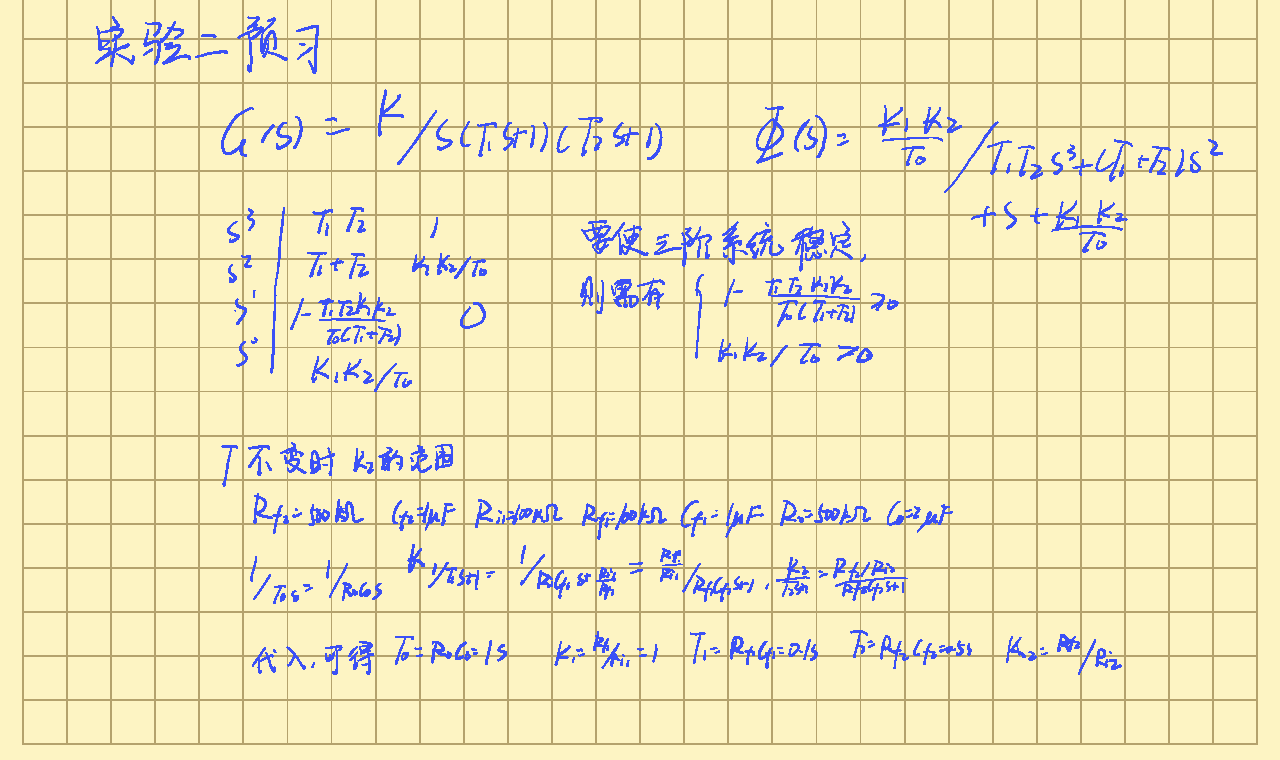 实验二预习
G(s) = K/s(T₁s+1)(T₂s+1)    Φ(s) = \frac{K₁K₂}{T₀}/T₁T₂s³+(T₁+T₂)s²
+s+\frac{K₁K₂}{T₀}
s³ | T₁T₂    1
s² | T₁+T₂    K₁K₂/T₀
s¹ | 1-\frac{T₁T₂K₁K₂}{T₀(T₁+T₂)}    0
s⁰ | K₁K₂/T₀
要使三阶系统稳定,
则需有 { 1-\frac{T₁T₂K₁K₂}{T₀(T₁+T₂)} >0
K₁K₂/T₀ >0
T不变时 K₂的范围
Rf₂=500kΩ Cf₂=1μF Ri₁=100kΩ Rf₁=100kΩ Cf₁=1μF R₀=500kΩ C₀=2μF
1/T₀s = 1/R₀C₀s    K₁/T₁s+1 = 1/Ri₁Cf₁s+\frac{Ri₁}{Rf₁} = \frac{Rf₁}{Ri₁}/Rf₁Cf₁s+1, \frac{K₂}{T₂s+1} = \frac{Rf₂/Ri₂}{Rf₂Cf₂s+1}
代入,可得 T₀=R₀C₀=1s    K₁=Rf₁/Ri₁=1    T₁=Rf₁Cf₁=0.1s    T₂=Rf₂Cf₂=0.5s    K₂=Rf₂/Ri₂